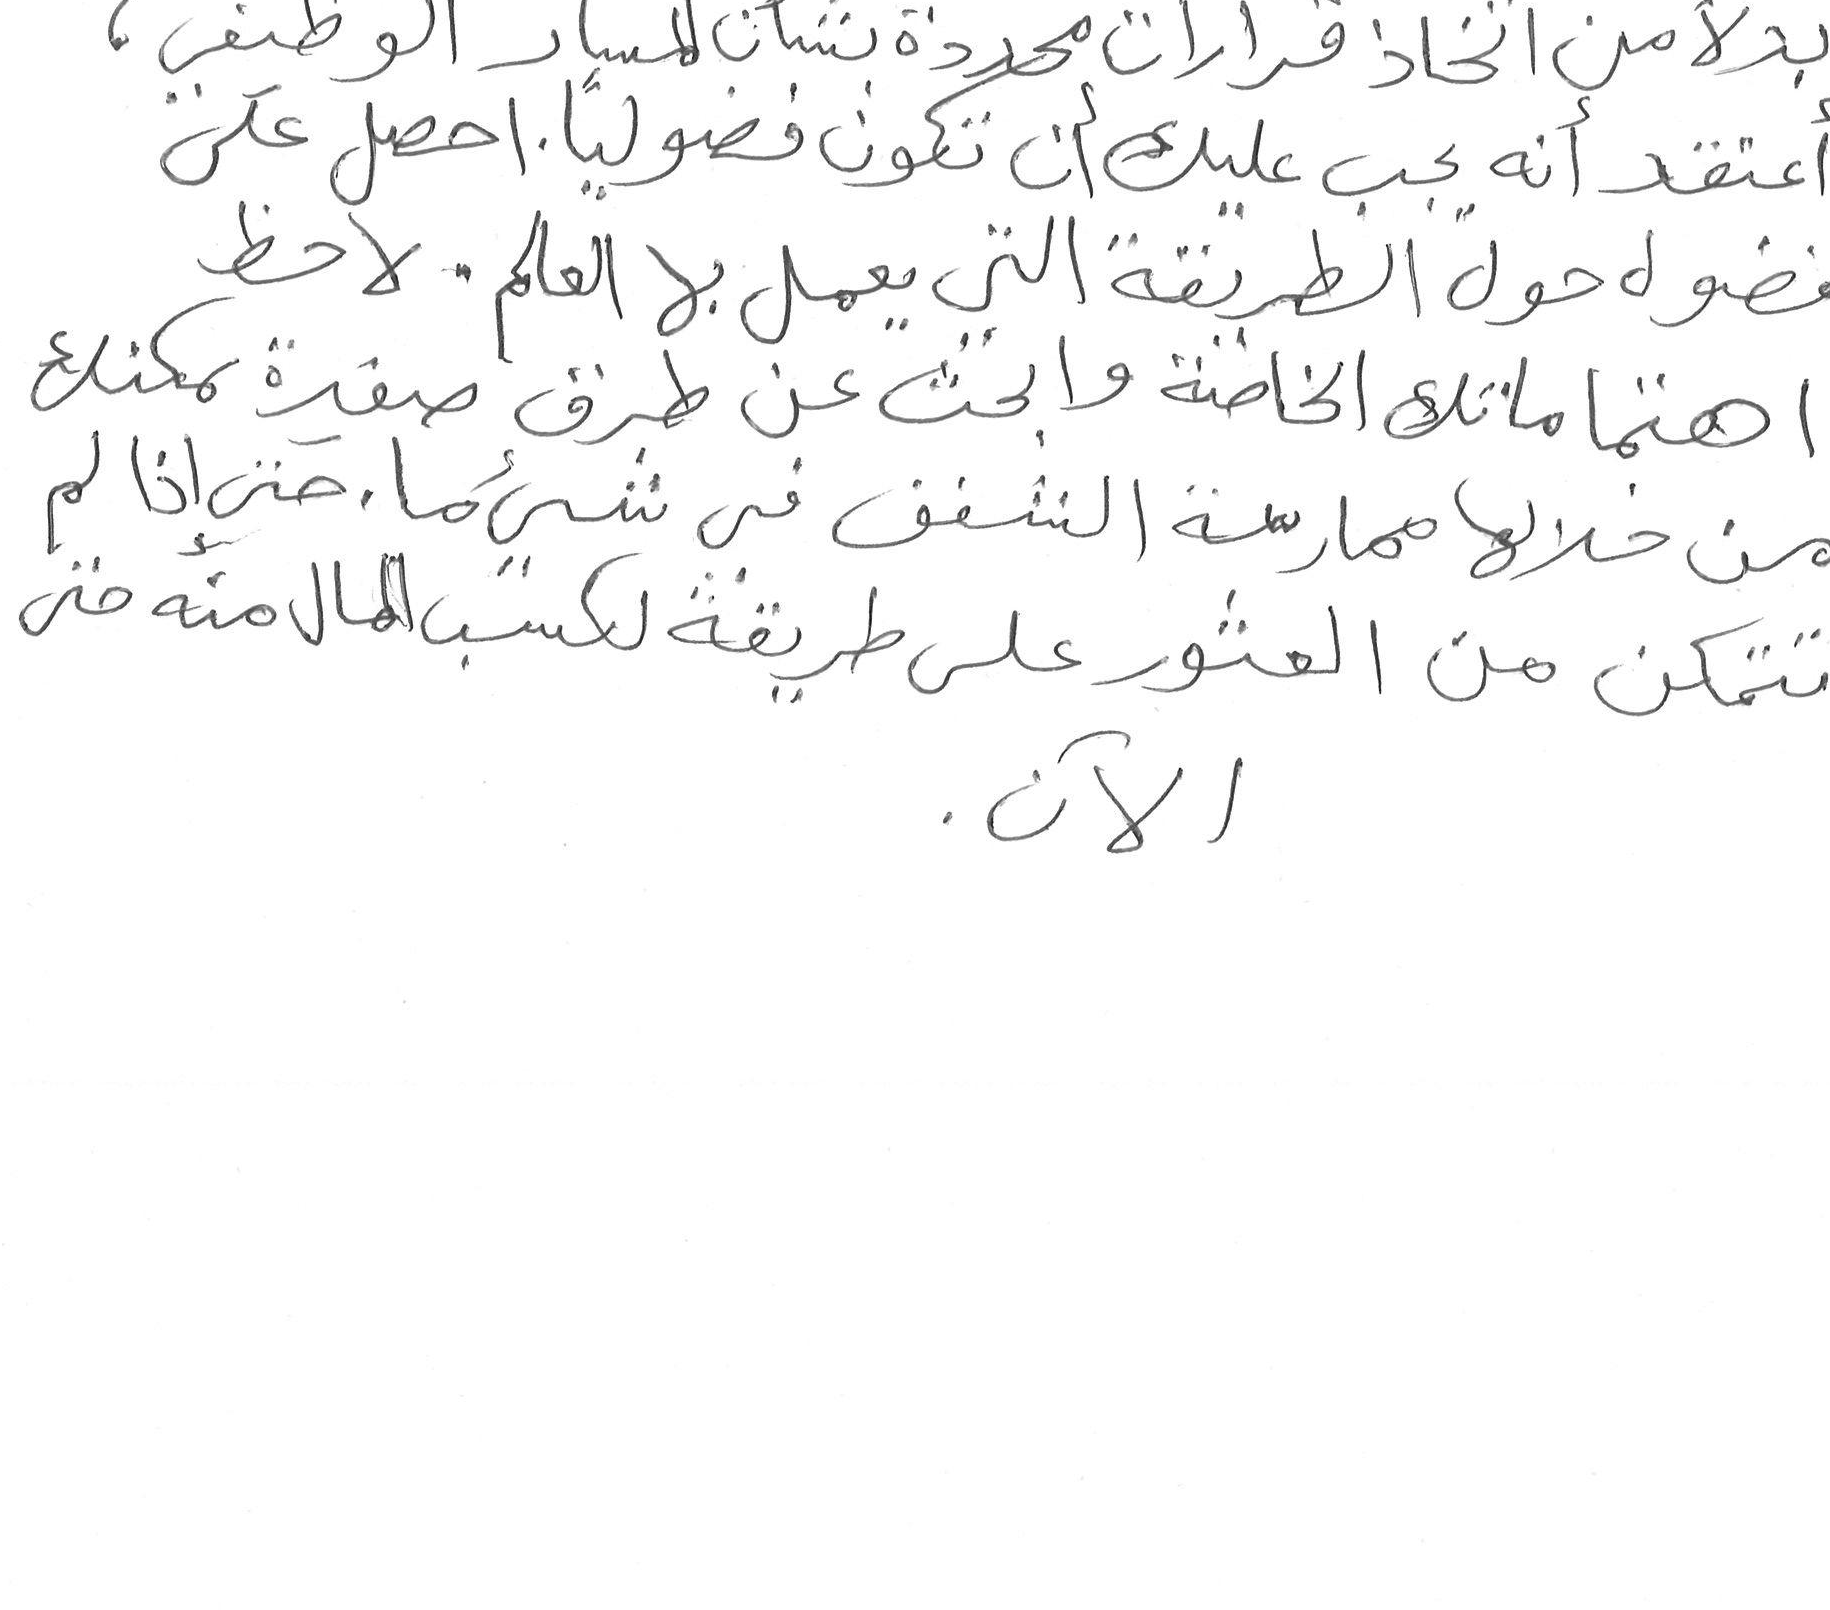 بدلاً من اتخاذ قرارات محددة بشأن المسار الوظيفي،
أعتقد أنه يجب عليك أن تكون فضولياً. احصل على
فضول حول الطريقة التي يعمل بها العالم. لاحظ
اهتماماتك الخاصة وابحث عن طرق صغيرة يمكنك
من خلالها ممارسة الشغف في شيء ما. حتى إذا لم
تتمكن من العثور على طريقة لكسب المال منه حتى
الآن.